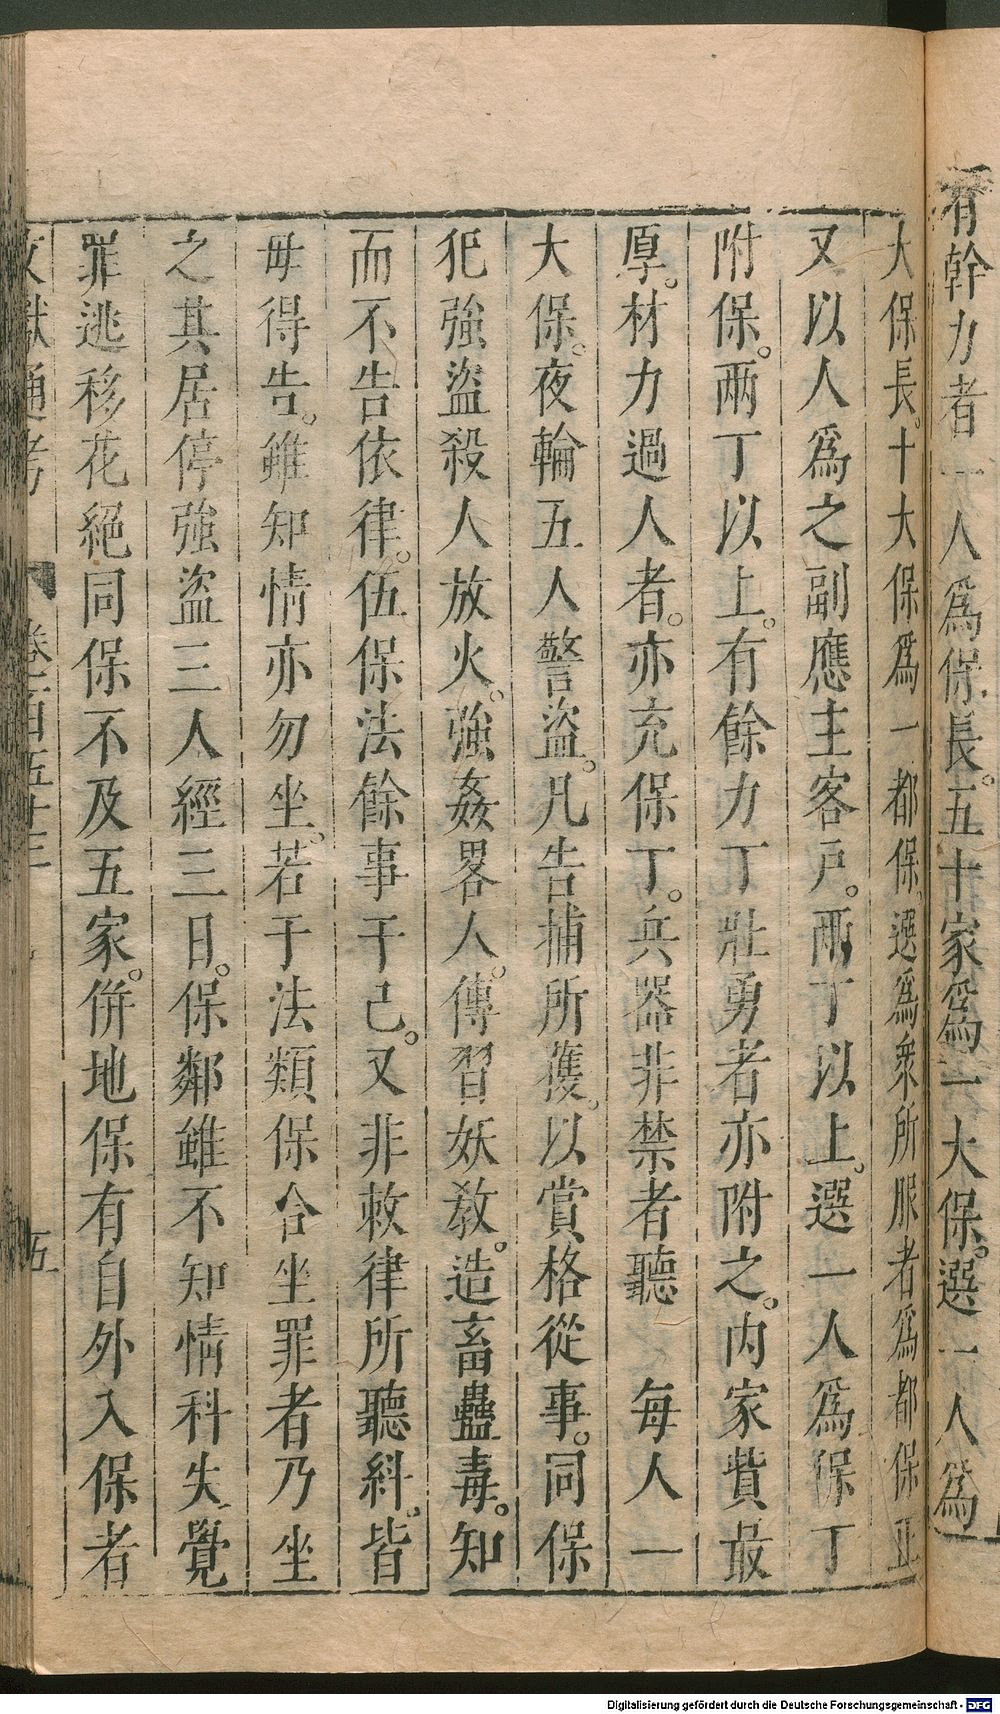 有幹力者一人爲保長。五十家爲一大保。選一人爲
大保長。十大保爲一都保。選爲衆所服者爲都保正
又以人爲之副應主客戸。兩丁以上。選一人爲保丁
附保。兩丁以上。有餘力丁壯勇者亦附之。内家貲最
厚。材力過人者。亦充保丁。兵器非禁者聽 每人一
大保。夜輪五人警盜。凡告捕所獲。以賞格從事。同保
犯強盜殺人放火。強姦畧人。傳習妖教。造畜蠱毒。知
而不告依律。伍保法餘事干己。又非敕律所聽糾。皆
毋得告。雖知情亦勿坐。若于法類保合坐罪者乃坐
之其居停強盜三人經三日。保鄰雖不知情科失覺
罪逃移花絕同保不及五家。併地保有自外入保者
文獻通考 卷一百五十三 五
Digitalisierung gefördert durch die Deutsche Forschungsgemeinschaft - DFG